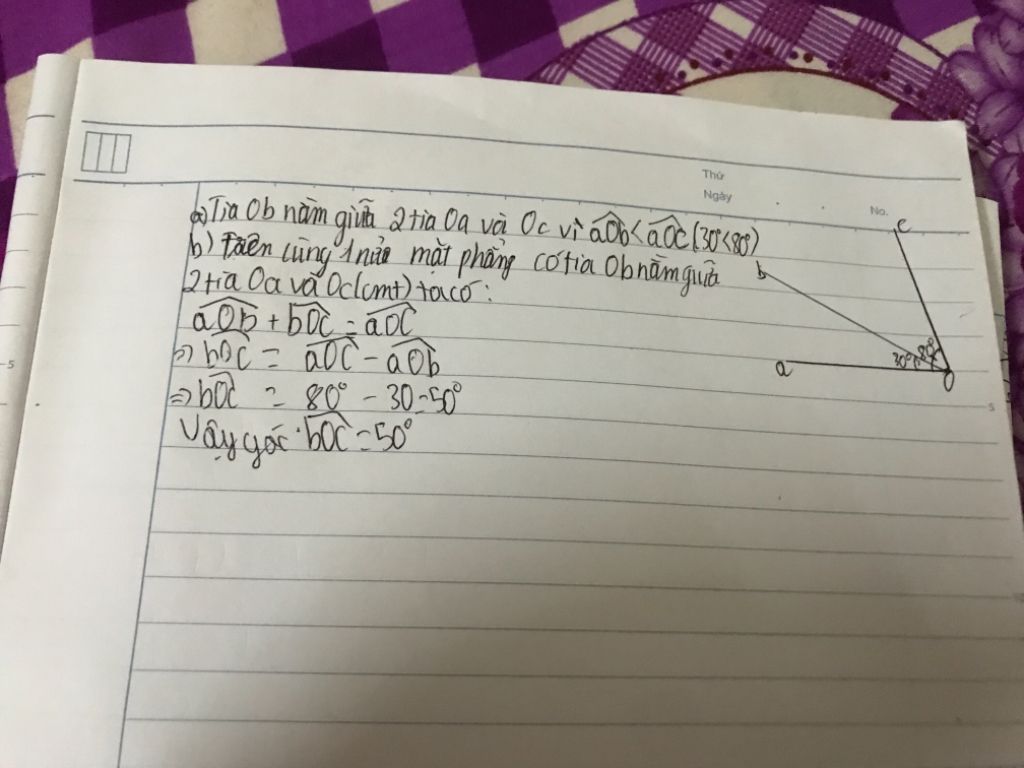 Thứ
Ngày
No.
a) Tia Ob nằm giữa 2 tia Oa và Oc vì aOb < aOc (30° < 80°)
b) trên cùng 1 nửa mặt phẳng có tia Ob nằm giữa
2 tia Oa và Oc (cmt) ta có:
aOb + bOc = aOc
=> bOc = aOc - aOb
=> bOc = 80° - 30 = 50°
Vậy góc bOc = 50°
c
b
80°
30°
a
O
5
5